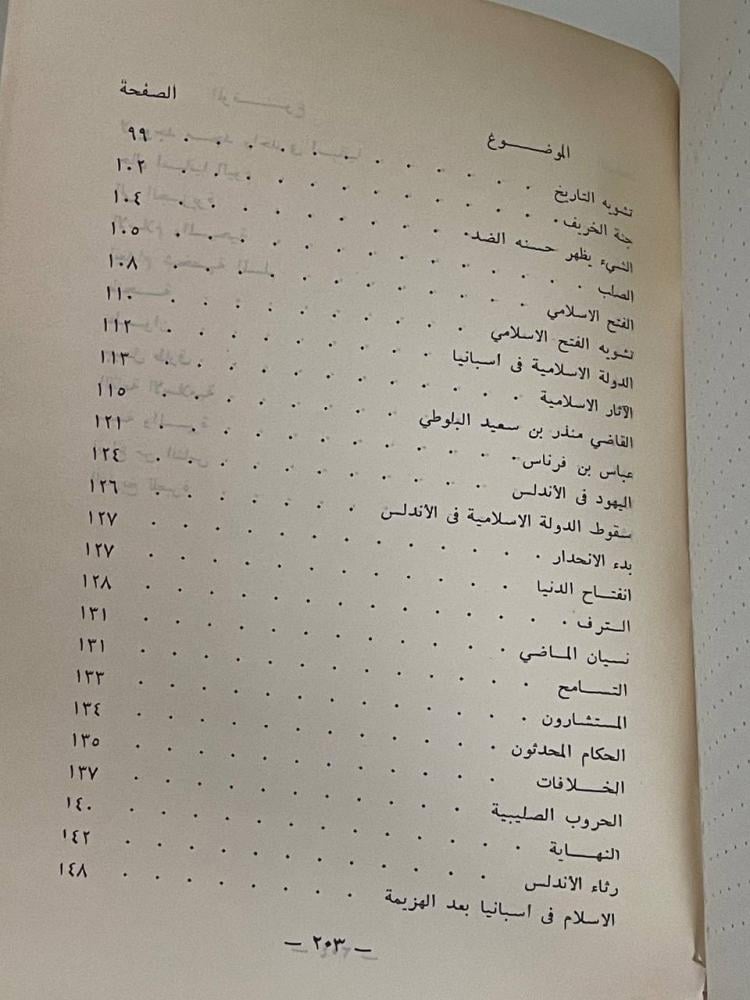 الموضوع الصفحة
تشويه التاريخ ٩٩
جنة الخريف ١٠٢
الشيء يظهر حسنه الضد ١٠٤
الصلب ١٠٥
الفتح الاسلامي ١٠٨
تشويه الفتح الاسلامي ١١٠
الدولة الاسلامية فى اسبانيا ١١٢
الآثار الاسلامية ١١٣
القاضي منذر بن سعيد البلوطي ١١٥
عباس بن فرناس ١٢١
اليهود فى الأندلس ١٢٤
سقوط الدولة الاسلامية فى الأندلس ١٢٦
بدء الانحدار ١٢٧
انفتاح الدنيا ١٢٧
الترف ١٢٨
نسيان الماضي ١٣١
التسامح ١٣١
المستشارون ١٣٣
الحكام المحدثون ١٣٤
الخلافات ١٣٥
الحروب الصليبية ١٣٧
النهاية ١٤٠
رثاء الأندلس ١٤٢
الاسلام فى اسبانيا بعد الهزيمة ١٤٨
— ٢٠٣ —